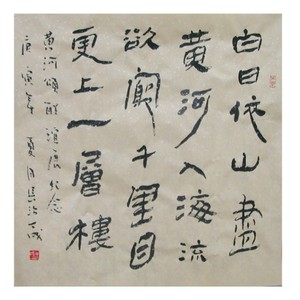 白日依山盡
黄河入海流
欲窮千里目
更上一層樓
黄河頌
展纪念
庚寅年夏月